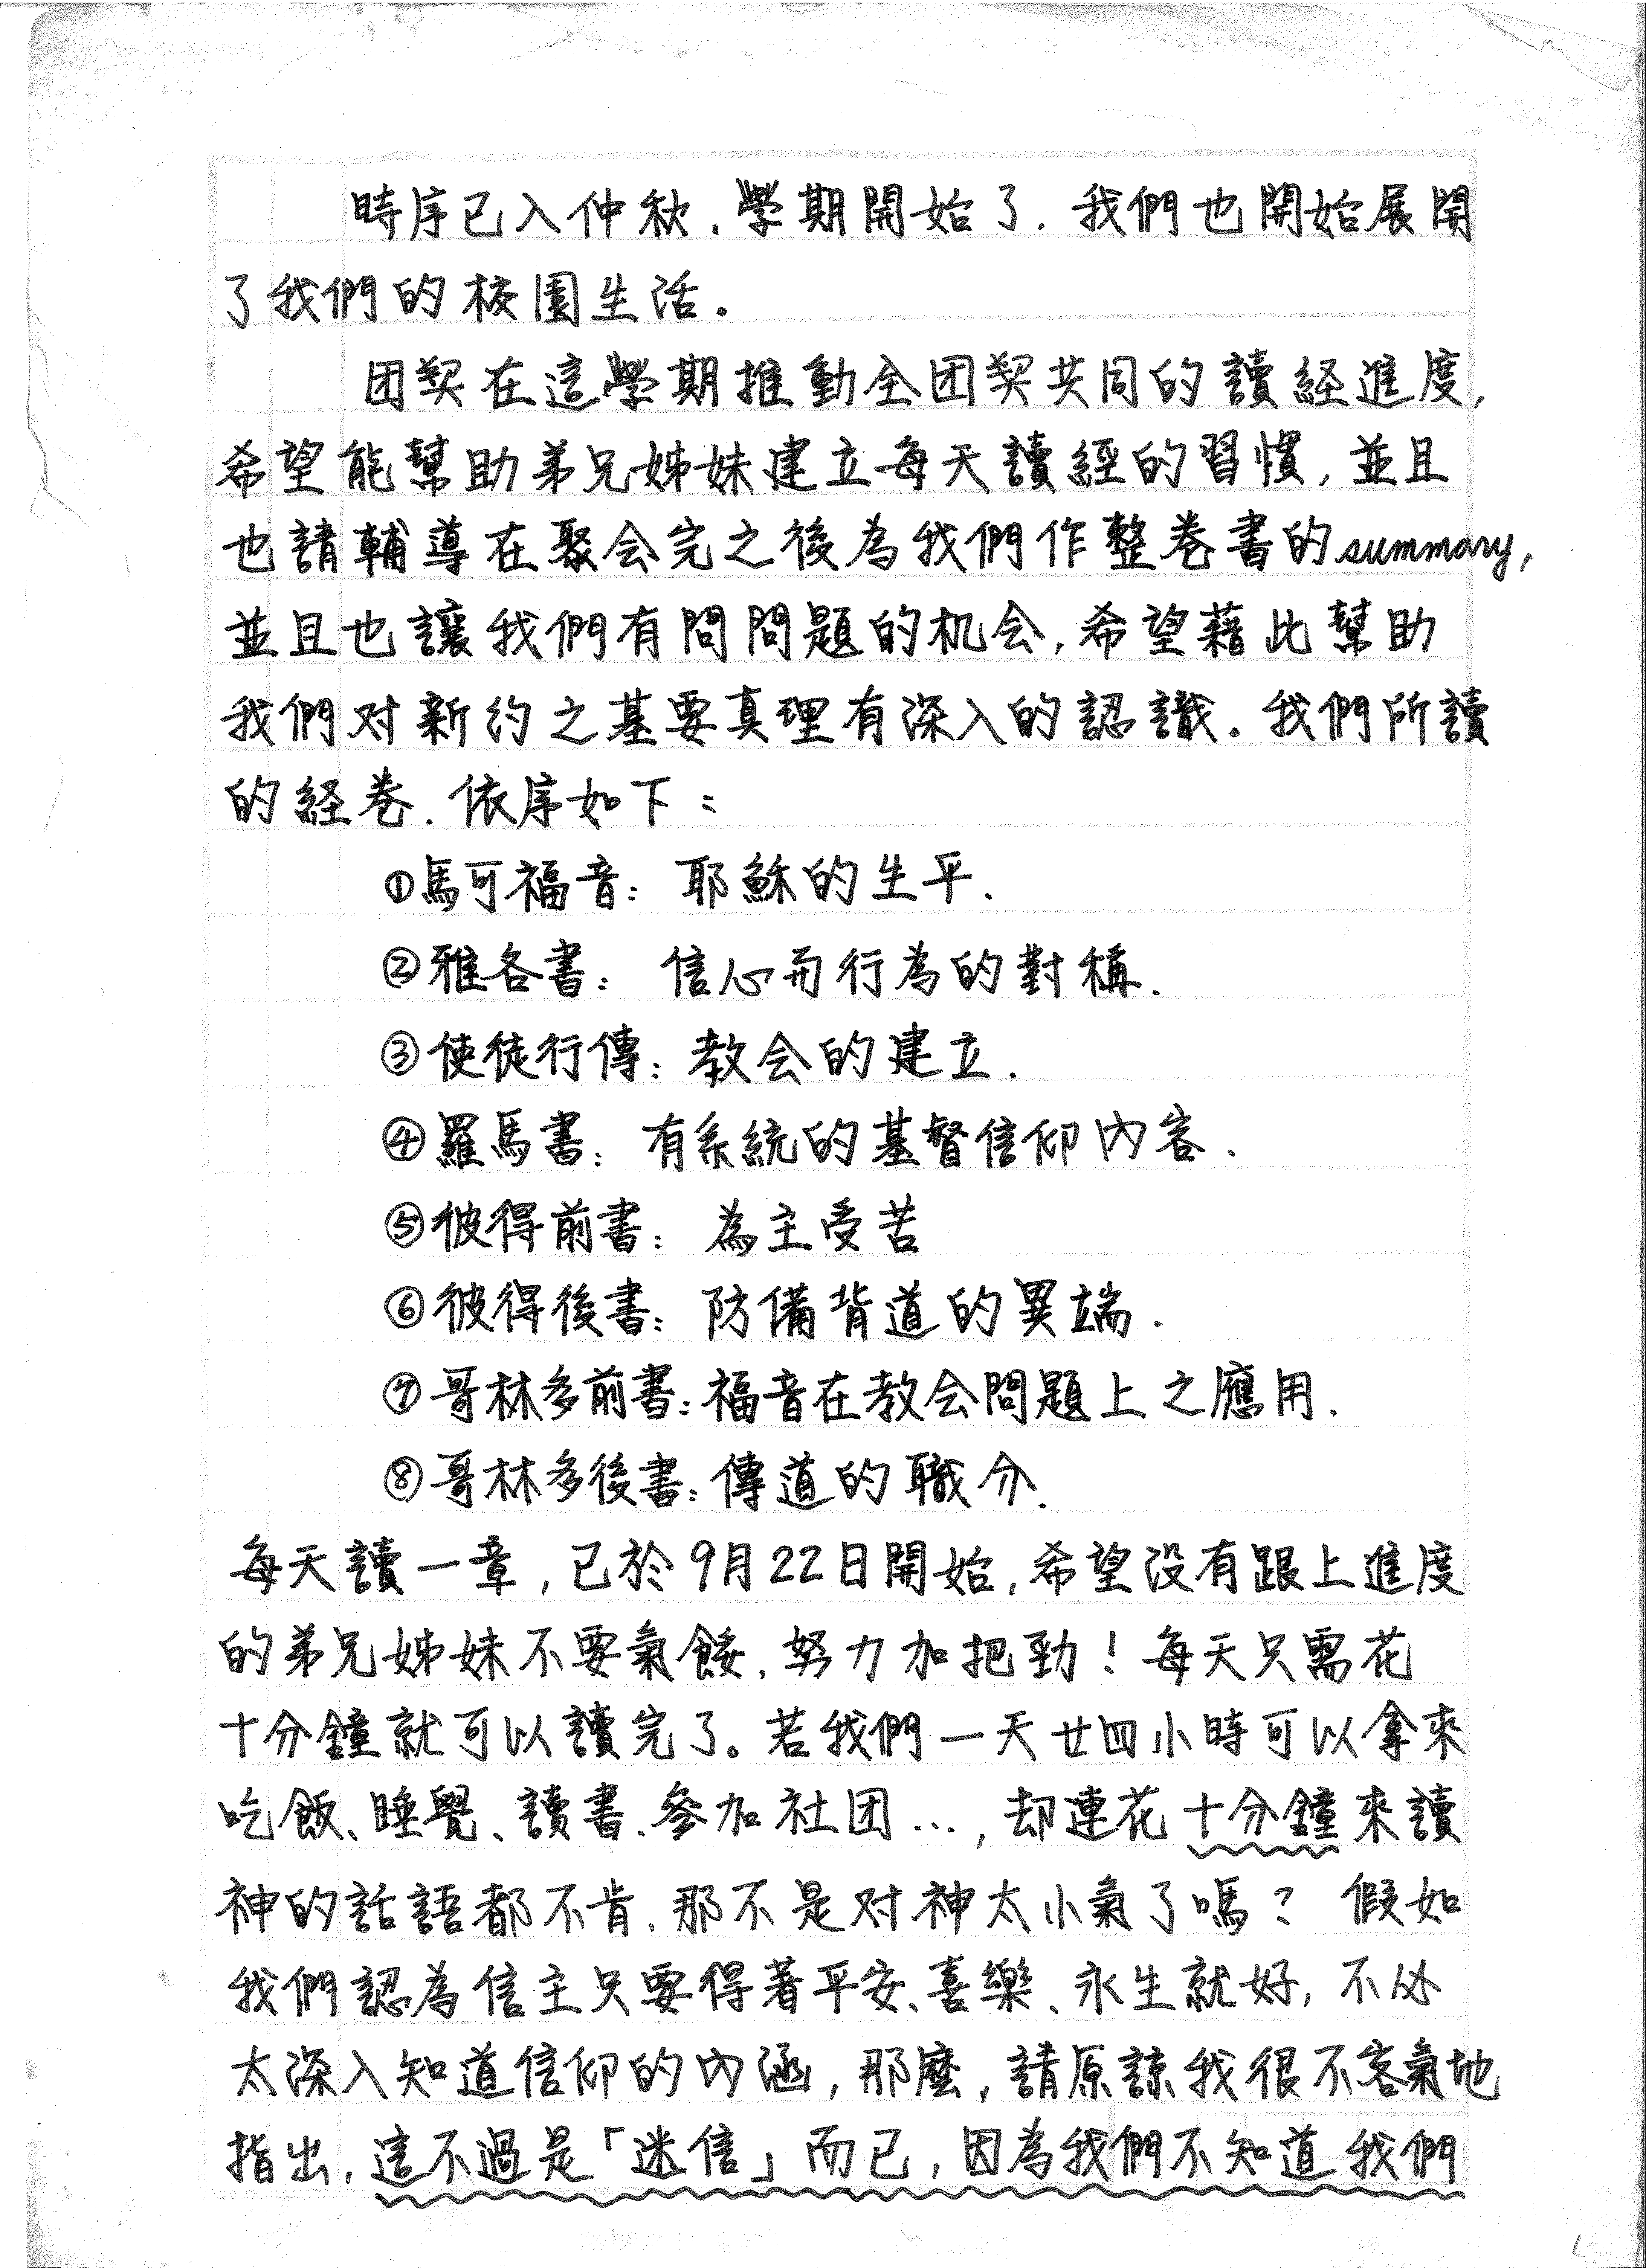 時序已入仲秋．學期開始了．我們也開始展開
了我們的校園生活．
团契在這學期推動全团契共同的讀経進度,
希望能幫助弟兄姊妹建立每天讀經的習慣, 並且
也請輔導在聚会完之後為我們作整卷書的summary,
並且也讓我們有問問題的机会, 希望藉此幫助
我們对新約之基要真理有深入的認識。我們所讀
的経卷．依序如下：
①馬可福音：耶穌的生平．
②雅各書：信心而行為的對稱．
③使徒行傳：教会的建立．
④羅馬書：有系統的基督信仰內容．
⑤彼得前書：為主受苦
⑥彼得後書：防備背道的異端．
⑦哥林多前書：福音在教会問題上之應用．
⑧哥林多後書：傳道的職分．
每天讀一章, 已於9月22日開始, 希望没有跟上進度
的弟兄姊妹不要氣餒, 努力加把勁！每天只需花
十分鐘就可以讀完了。若我們一天廿四小時可以拿來
吃飯、睡覺、讀書、參加社团…, 却連花十分鐘來讀
神的話語都不肯, 那不是对神太小氣了嗎？假如
我們認為信主只要得著平安、喜樂、永生就好, 不必
太深入知道信仰的內涵, 那麼, 請原諒我很不客氣地
指出, 這不過是「迷信」而已, 因為我們不知道我們